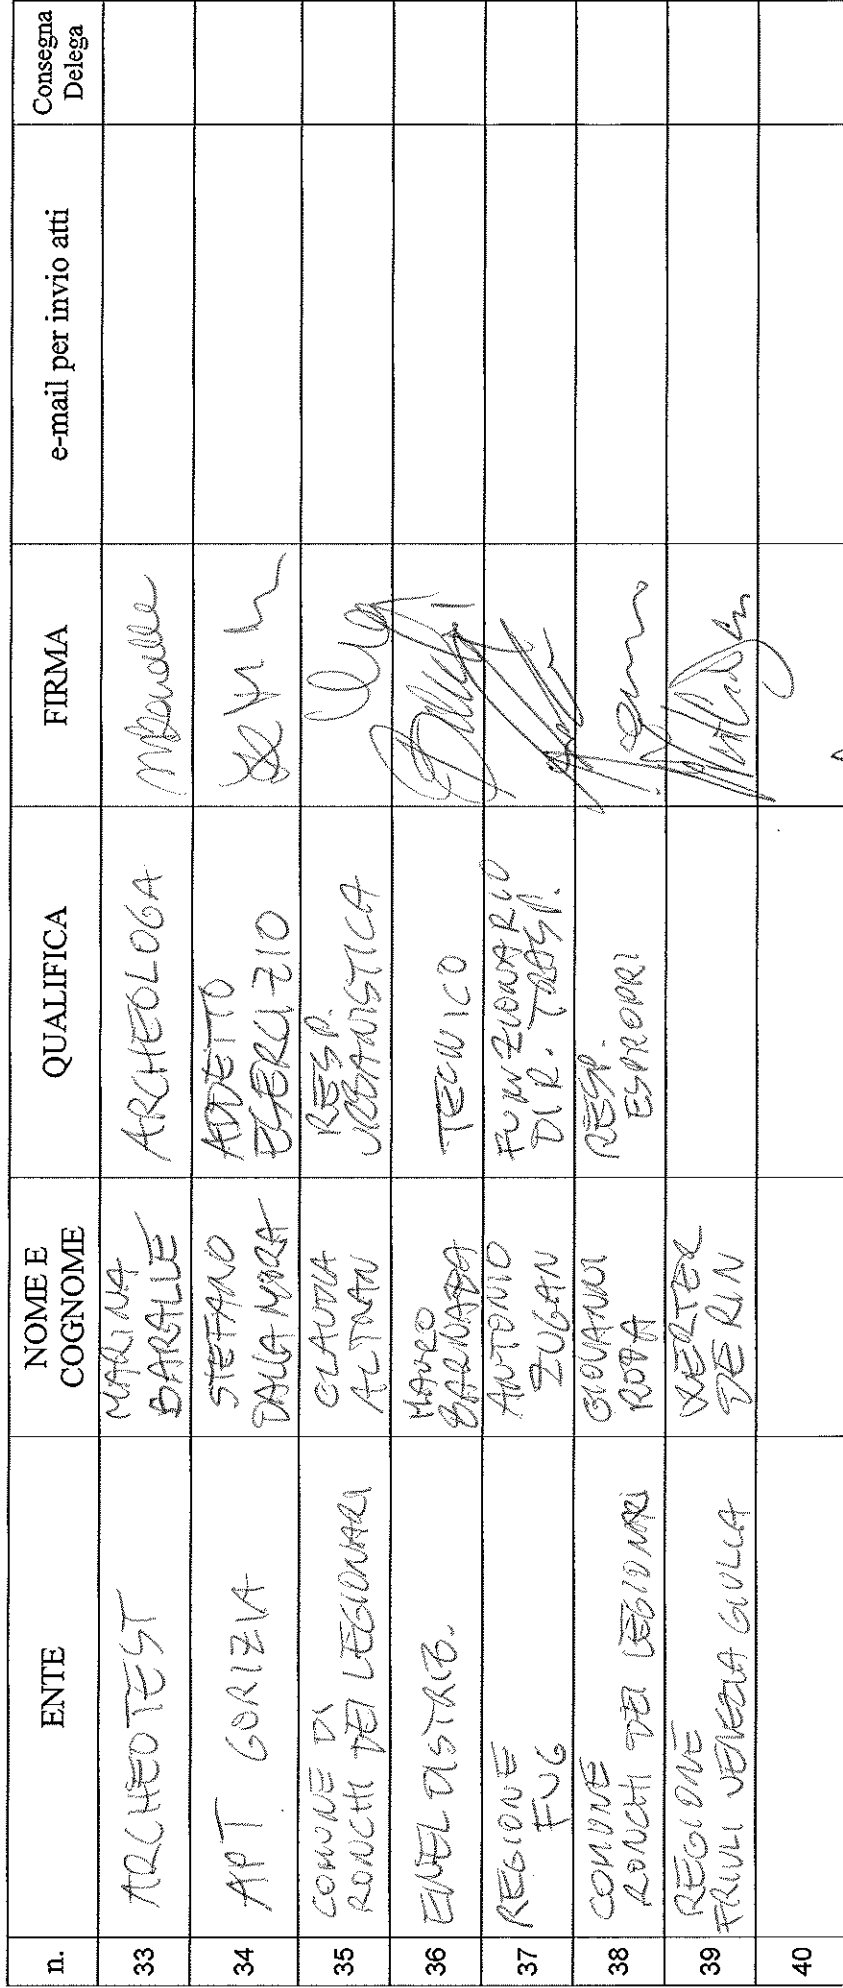 n.
ENTE
NOME E
COGNOME
QUALIFICA
FIRMA
e-mail per invio atti
Consegna
Delega
33
ARCHEOTEST
MARINA
BARALLE
ARCHEOLOGA
34
APT GORIZIA
STEFANO
DALLA MORA
ADDETTO
ESERCIZIO
35
COMUNE DI
RONCHI DEI LEGIONARI
CLAUDIA
ALTRAN
RESP.
URBANISTICA
36
ENEL DISTRIB.
MAURO
BARNABA
TECNICO
37
REGIONE
FVG
ANTONIO
ZUGAN
FUNZIONARIO
DIR. TRASP.
38
COMUNE
RONCHI DEI LEGIONARI
GIOVANNI
RODA
RESP.
ESPROPRI
39
REGIONE
FRIULI VENEZIA GIULIA
WERTER
DERIN
40